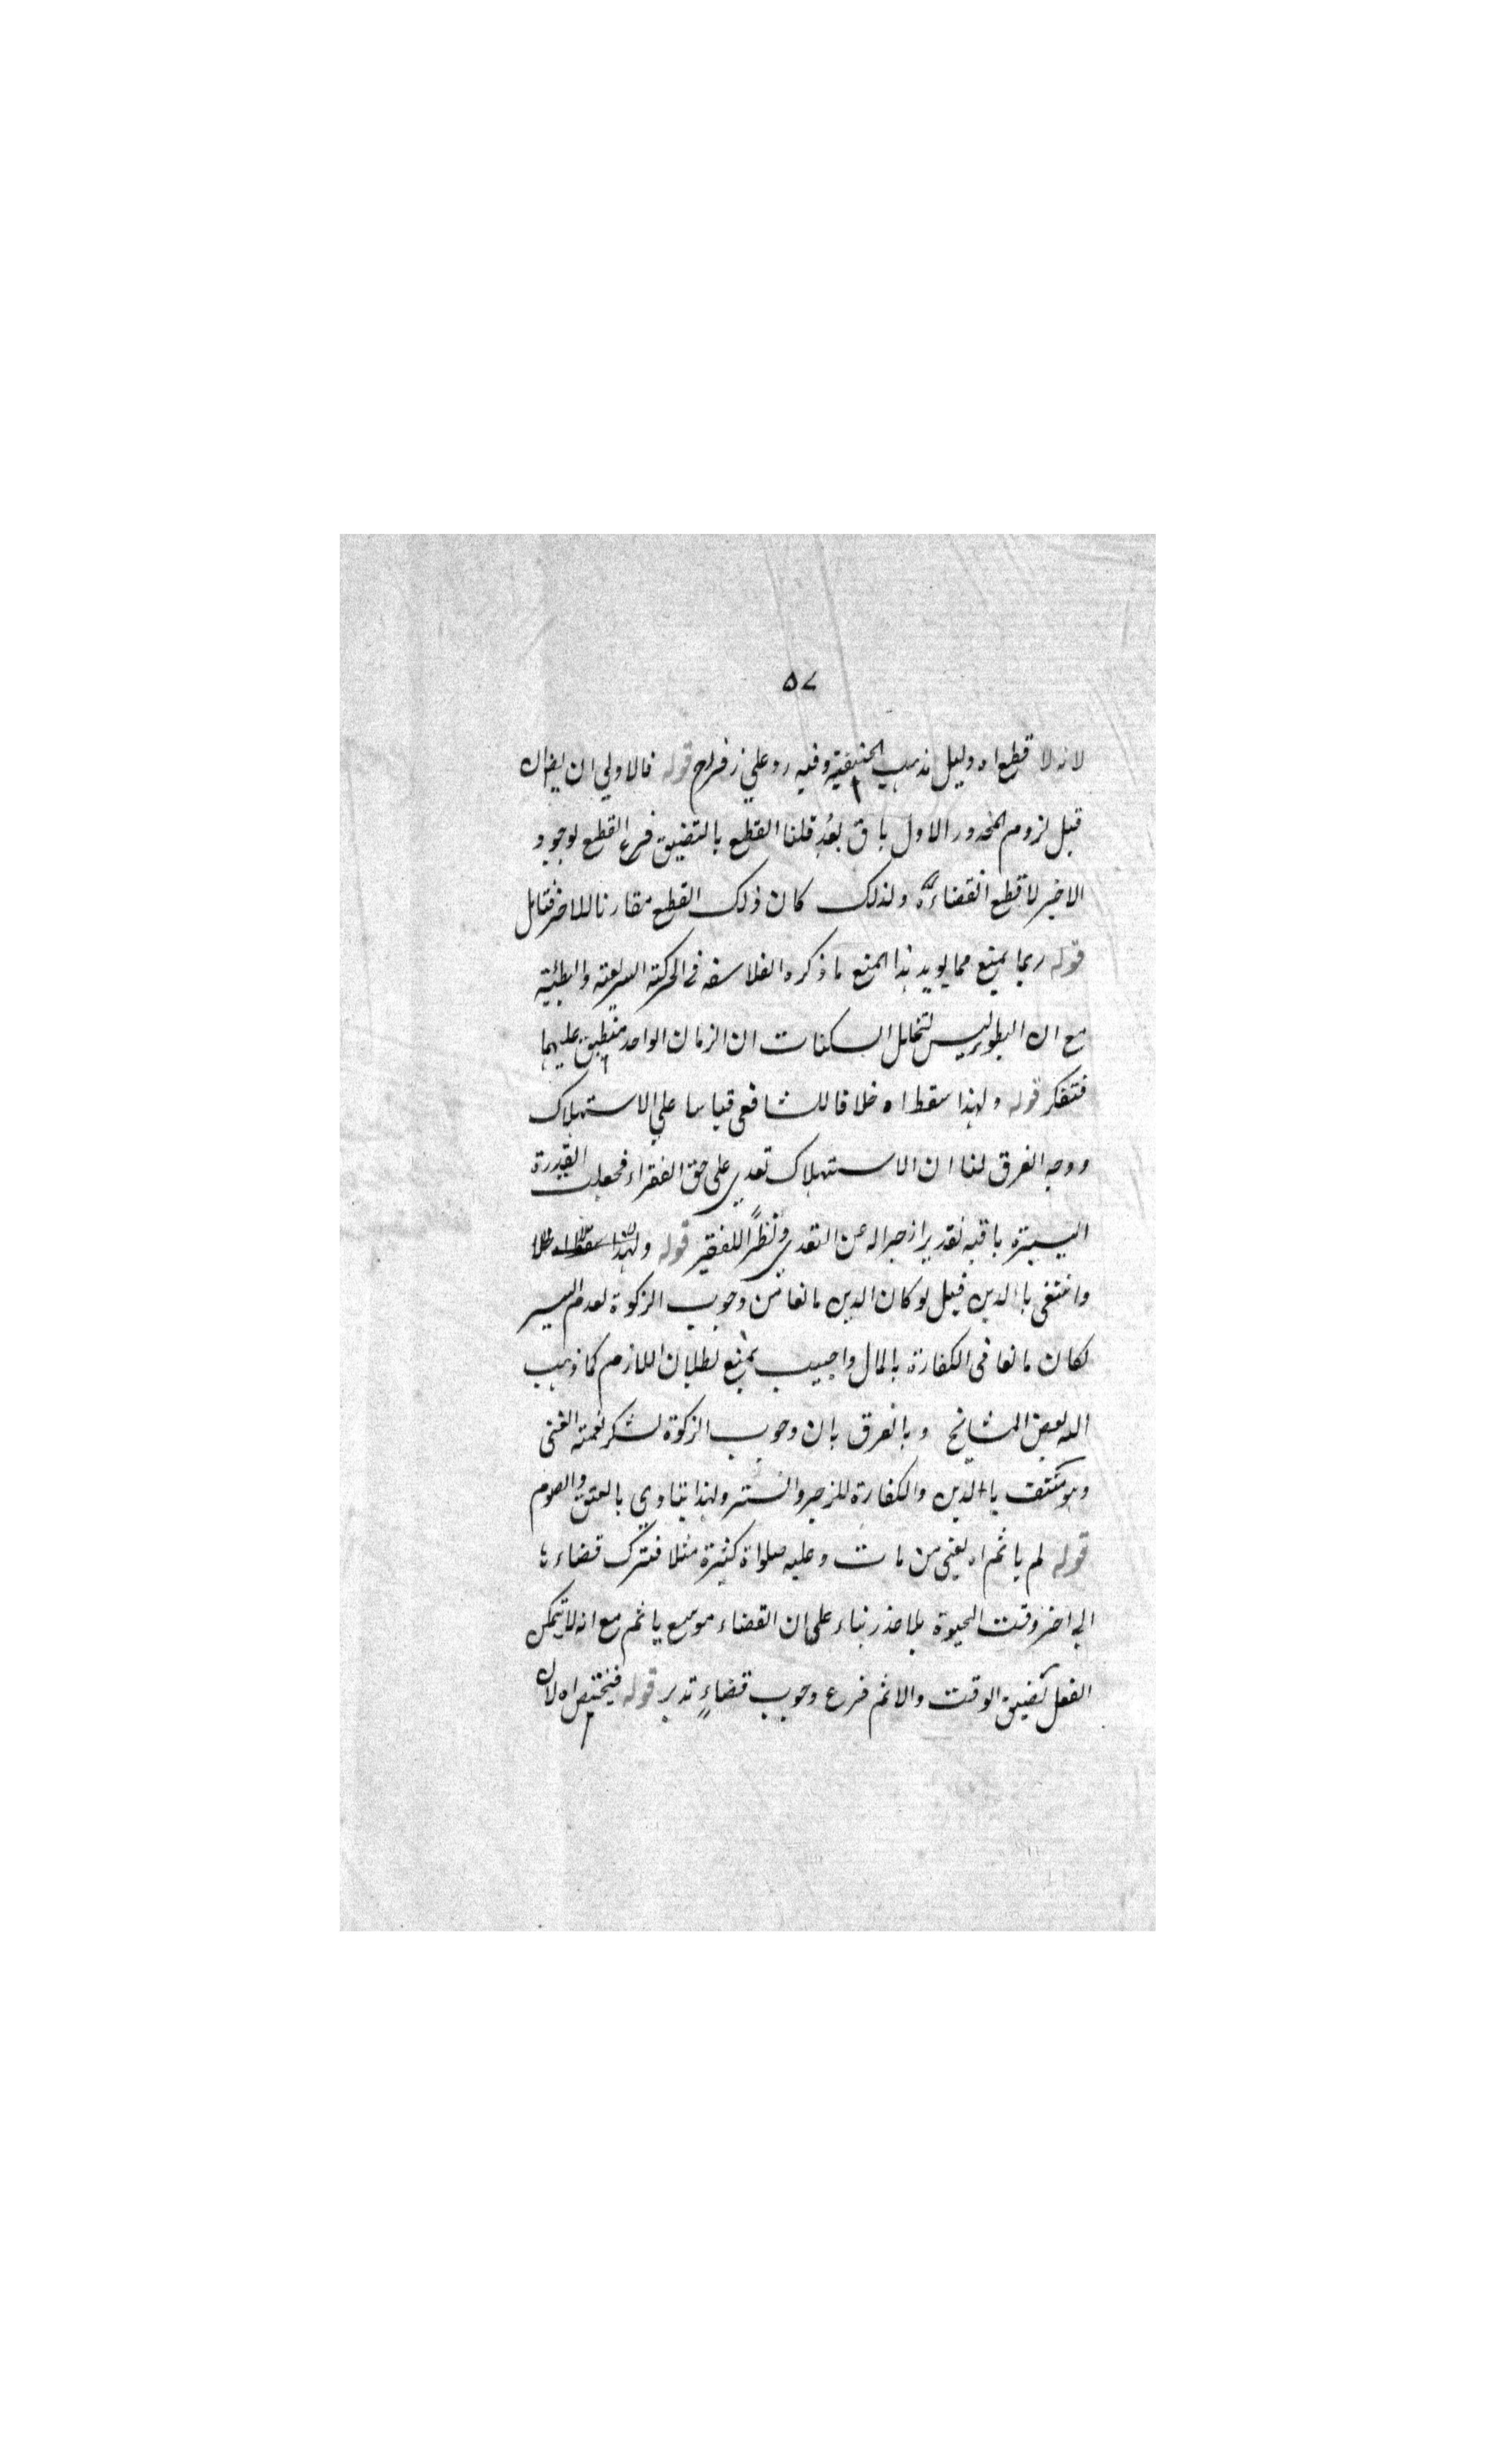 ۵۷
لانه لا قطع اه دليل مذهب الحنيفية وفيه رد علي زفر رح قوله فالاولي ان يقال
قبل لزوم المحذور الاول باق بعد قلنا القطع بالتضيق فرع القطع لوجود
الاخير لا قطع انقضاءه ولذلك كان ذلك القطع مقارنا للاخر فتامل
قوله ربما يمنع مما يويد هذا المنع ما ذكره الفلاسفه في الحركة السريعة والبطئية
مع ان البطؤ ليس لتخلل السكنات ان الزمان الواحد منطبق عليهما
فتفكر قوله ولهذا سقط اه خلافا للشافعي قياسا علي الاستهلاك
ووجه الفرق لنا ان الاستهلاك تعدي على حق الفقراء فجعلت القدرة
اليسيرة باقيه تقديرا زجرا له عن التعدي ونظرًا للفقير قوله ولهذا سقط اه خلا
وانتفى بالدين قيل لو كان الدين مانعا من وجوب الزكوة لعدم اليسر
لكان مانعا في الكفارة بالمال واجيب بمنع بطلان اللازم كما ذهب
اليه بعض المشائخ وبالفرق بان وجوب الزكوة لشكر نعمة الغنى
وهو منتف بالدين والكفارة للزجر والستر ولهذا يتادي بالعتق والصوم
قوله لم ياثم اه يعنى من مات وعليه صلواة كثيرة مثلا فترك قضاءها
الي اخر وقت الحيوة بلا عذر بناء على ان القضاء موسع ياثم مع انه لا يتمكن
الفعل لضيق الوقت والاثم فرع وجوب قضاءٍ تدبر قوله فيختص اه لان